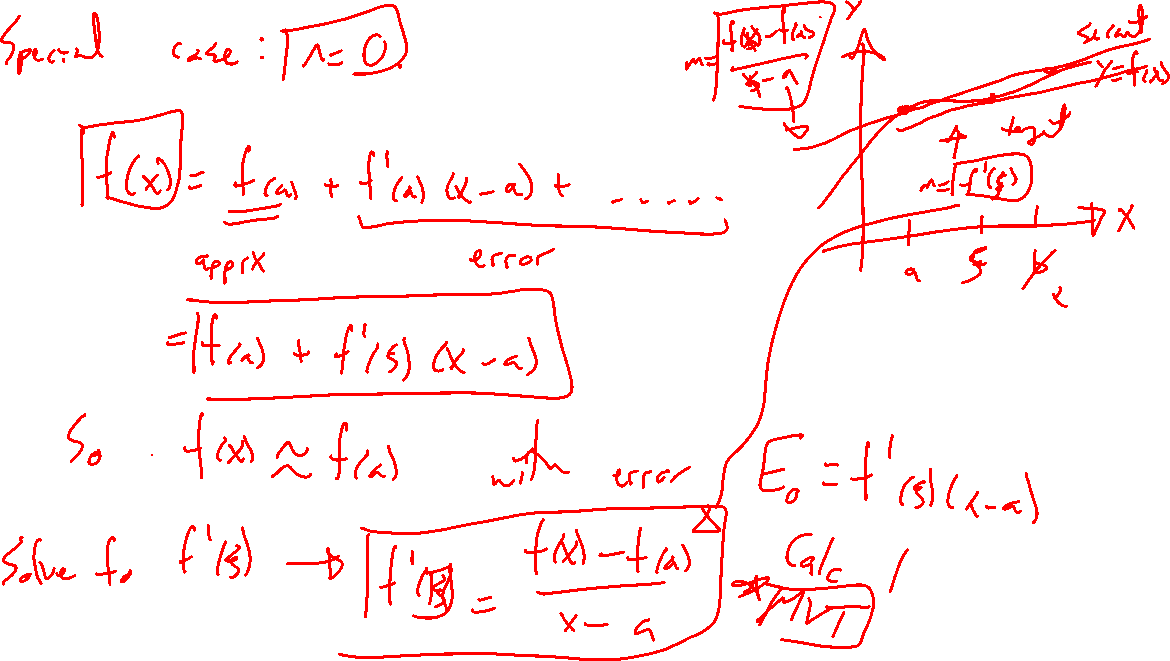 Special case: n = 0
f(x) = f(a) + f'(a) (x-a) + ......
apprx error
= f(a) + f'(ξ) (x-a)
So f(x) ≈ f(a) with error E₀ = f'(ξ)(x-a)
Solve fo f'(ξ) → f'(ξ) = (f(x) - f(a)) / (x - a)
Calc 1
*MVT
m = (f(x) - f(a)) / (x - a)
Y
secant
y = f(x)
tangent
m = f'(ξ)
X
a ξ x